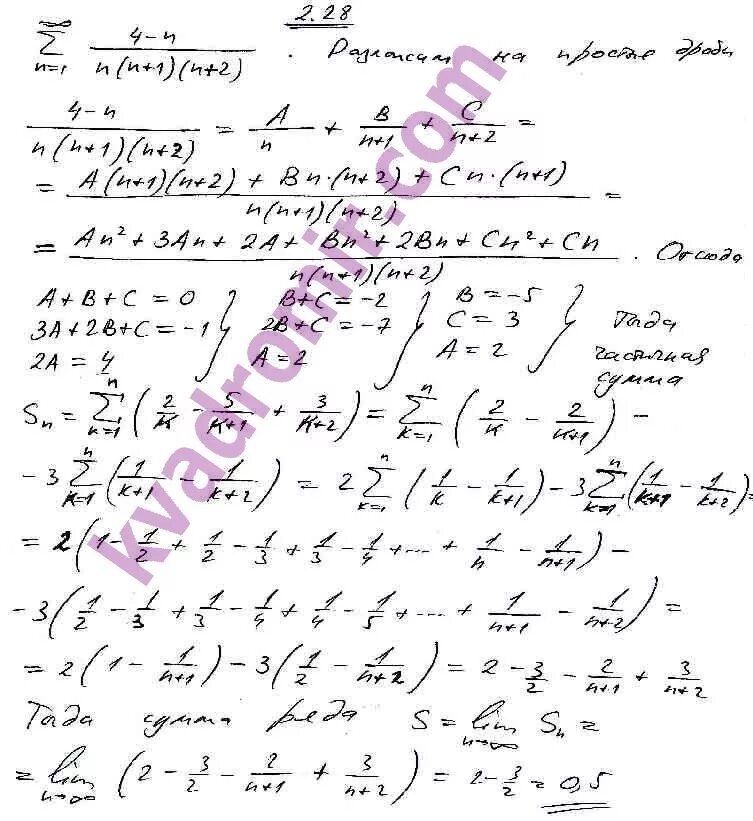 2.28
∞ ∑ n=1 (4-n)/(n(n+1)(n+2)) . Разложим на простые дроби
(4-n)/(n(n+1)(n+2)) = A/n + B/(n+1) + C/(n+2) =
= (A(n+1)(n+2) + Bn·(n+2) + Cn·(n+1))/(n(n+1)(n+2)) =
= (An² + 3An + 2A + Bn² + 2Bn + Cn² + Cn)/(n(n+1)(n+2)) . Отсюда
A+B+C = 0 } B+C = -2 } B = -5 } Тогда
3A+2B+C = -1 } 2B+C = -7 } C = 3 } частичная
2A = 4 } A = 2 } A = 2 } сумма
Sₙ = n ∑ k=1 (2/k - 5/(k+1) + 3/(k+2)) = n ∑ k=1 (2/k - 2/(k+1)) -
-3 n ∑ k=1 (1/(k+1) - 1/(k+2)) = 2 n ∑ k=1 (1/k - 1/(k+1)) - 3 n ∑ k=1 (1/(k+1) - 1/(k+2)) =
= 2(1 - 1/2 + 1/2 - 1/3 + 1/3 - 1/4 + ... + 1/n - 1/(n+1)) -
-3(1/2 - 1/3 + 1/3 - 1/4 + 1/4 - 1/5 + ... + 1/(n+1) - 1/(n+2)) =
= 2(1 - 1/(n+1)) - 3(1/2 - 1/(n+2)) = 2 - 3/2 - 2/(n+1) + 3/(n+2)
Тогда сумма ряда S = lim n→∞ Sₙ =
= lim n→∞ (2 - 3/2 - 2/(n+1) + 3/(n+2)) = 2 - 3/2 = 0,5
kvadromir.com